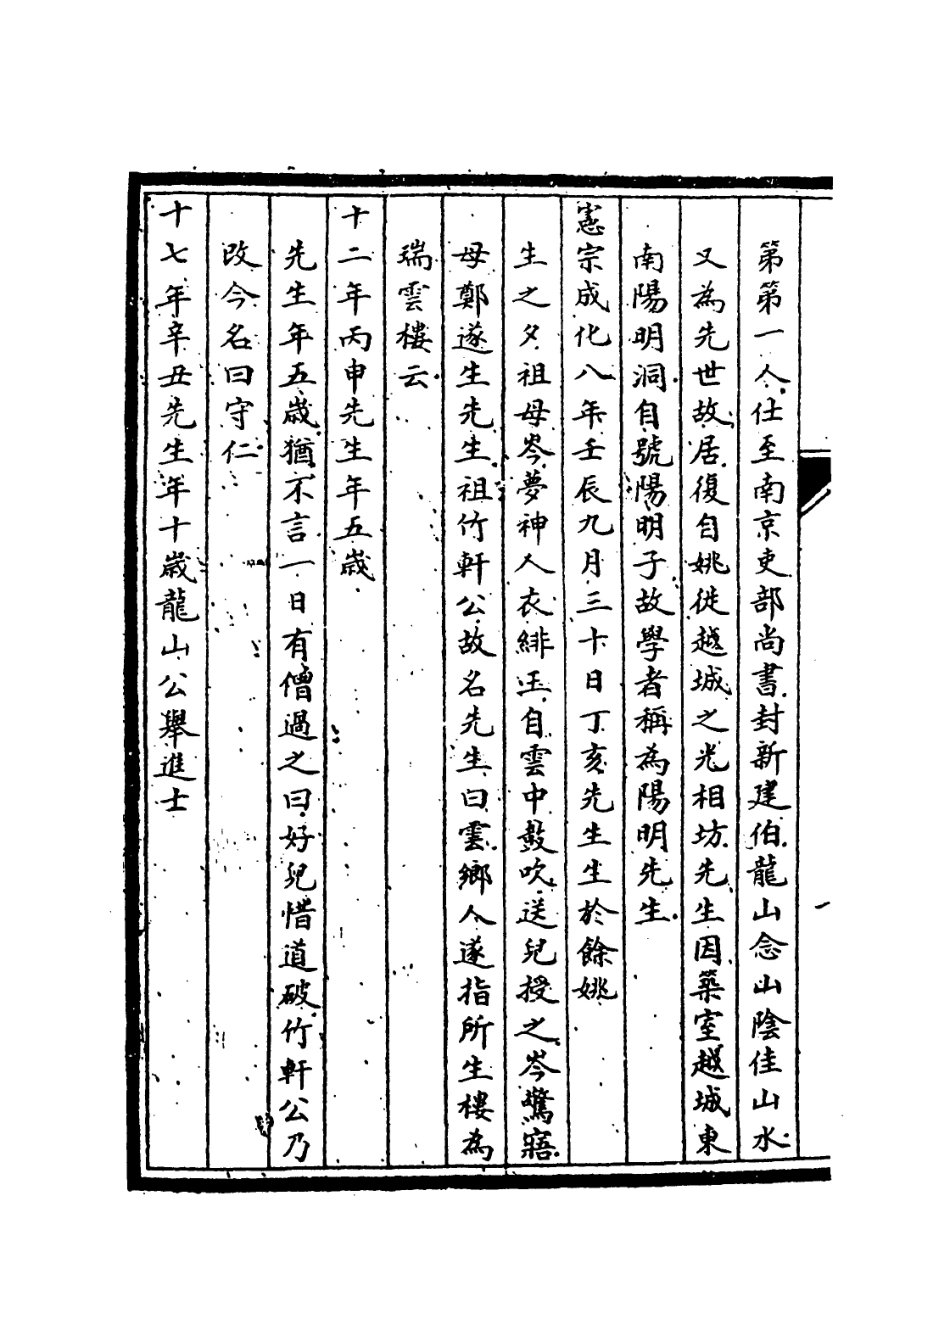 第第一人仕至南京吏部尚書封新建伯龍山念山陰佳山水
又為先世故居復自姚徙越城之光相坊先生因築室越城東
南陽明洞自號陽明子故學者稱為陽明先生
憲宗成化八年壬辰九月三十日丁亥先生生於餘姚
生之夕祖母岑夢神人衣緋玉自雲中鼓吹送兒授之岑驚寤
母鄭遂生先生祖竹軒公故名先生曰雲鄉人遂指所生樓為
瑞雲樓云
十二年丙申先生年五歲
先生年五歲猶不言一日有僧過之曰好兒惜道破竹軒公乃
改今名曰守仁
十七年辛丑先生年十歲龍山公舉進士